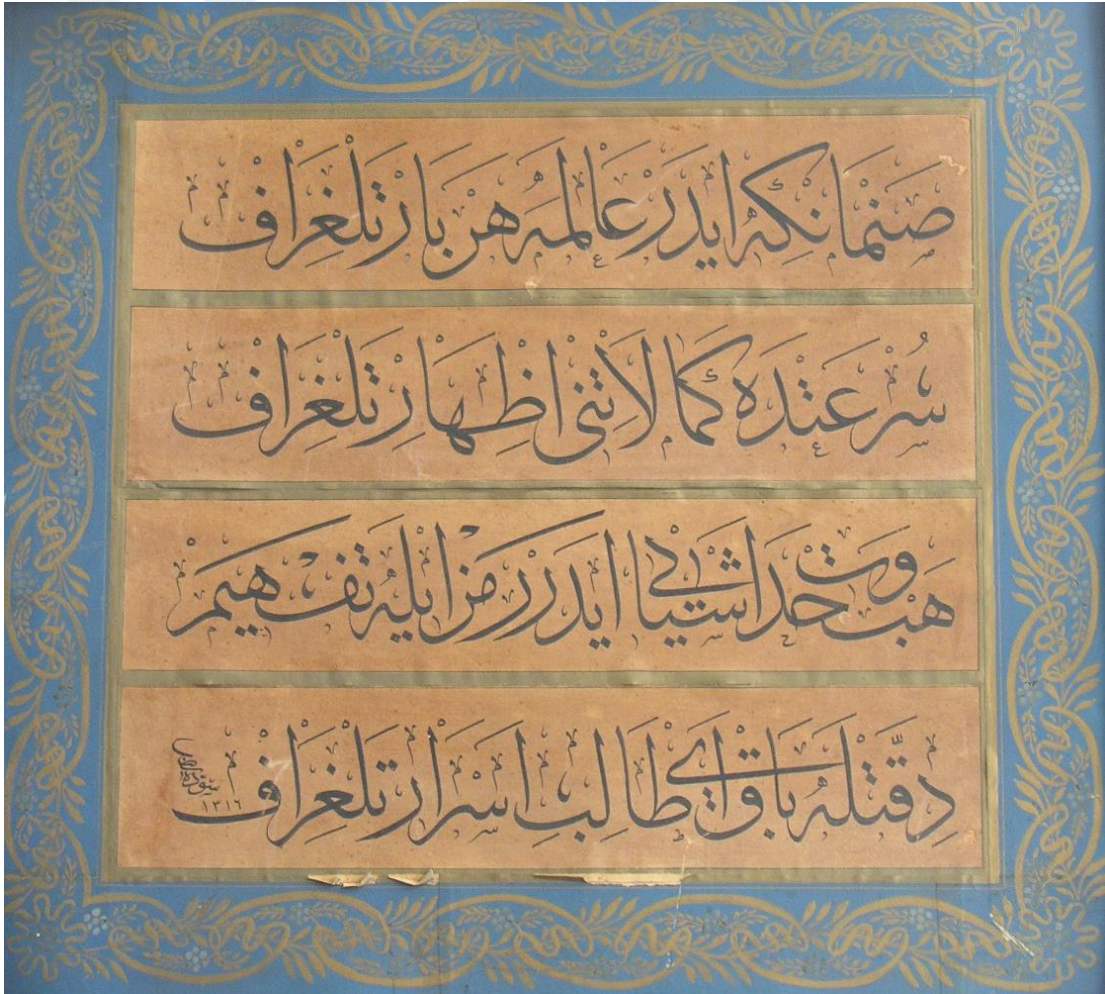 صنمانكه ايدر عالمه هر بار تلغراف
سرعتده كمالاتنى اظهار تلغراف
هب وحدت اشيايى ايدر رمز ايله تفهيم
دقتله باق اى طالب اسرار تلغراف
١٣١٦